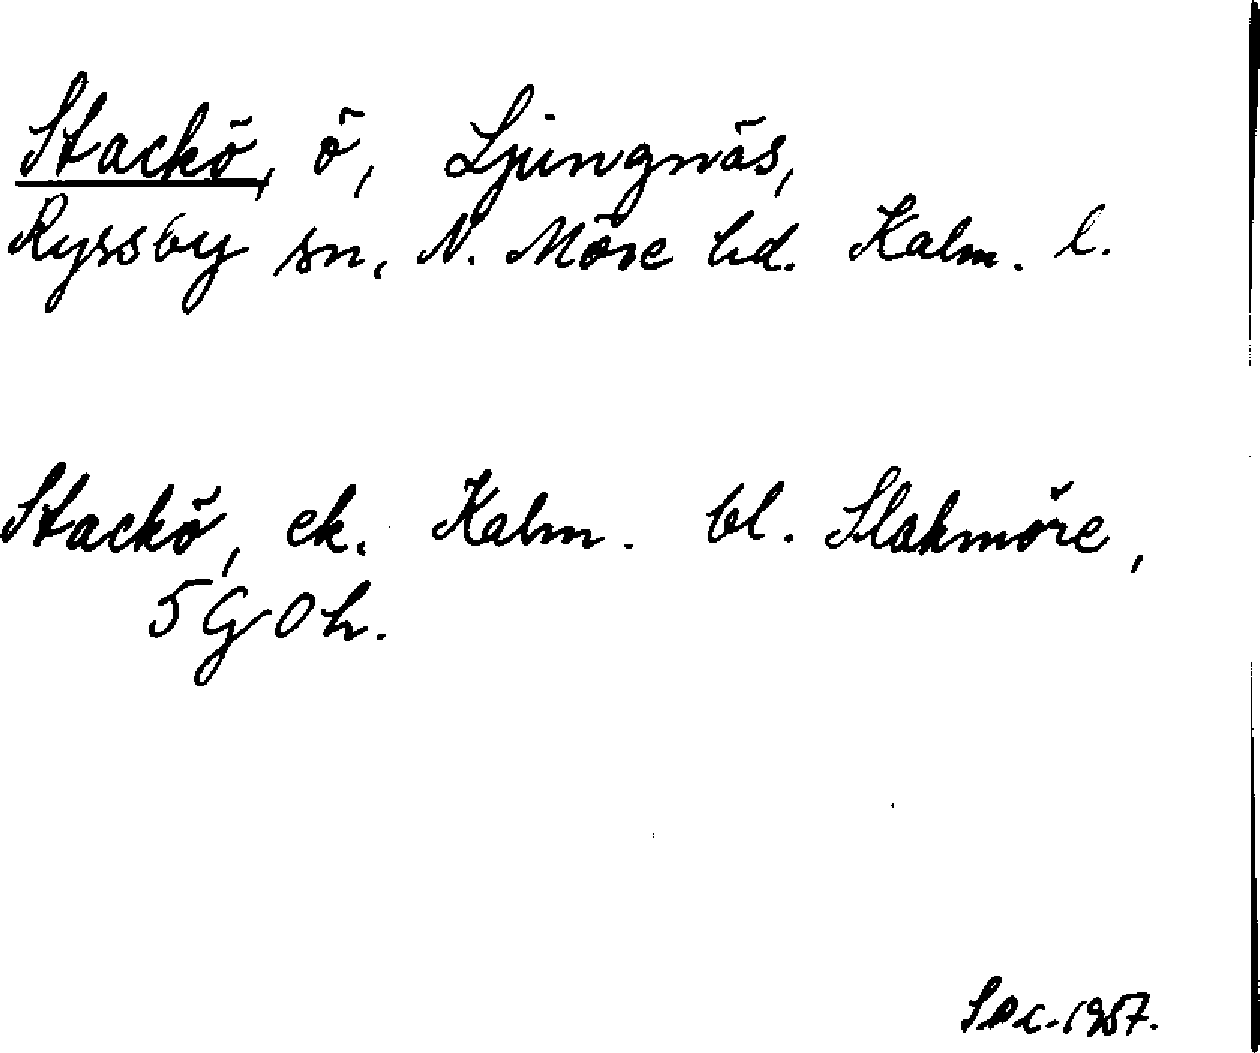 Stackö, ö, Ljungnäs,
Ryssby sn, N. Möre hd. Kalm. l.
Stackö, ek. Kalm. bl. Slakmöre,
5 G Oh.
1957.